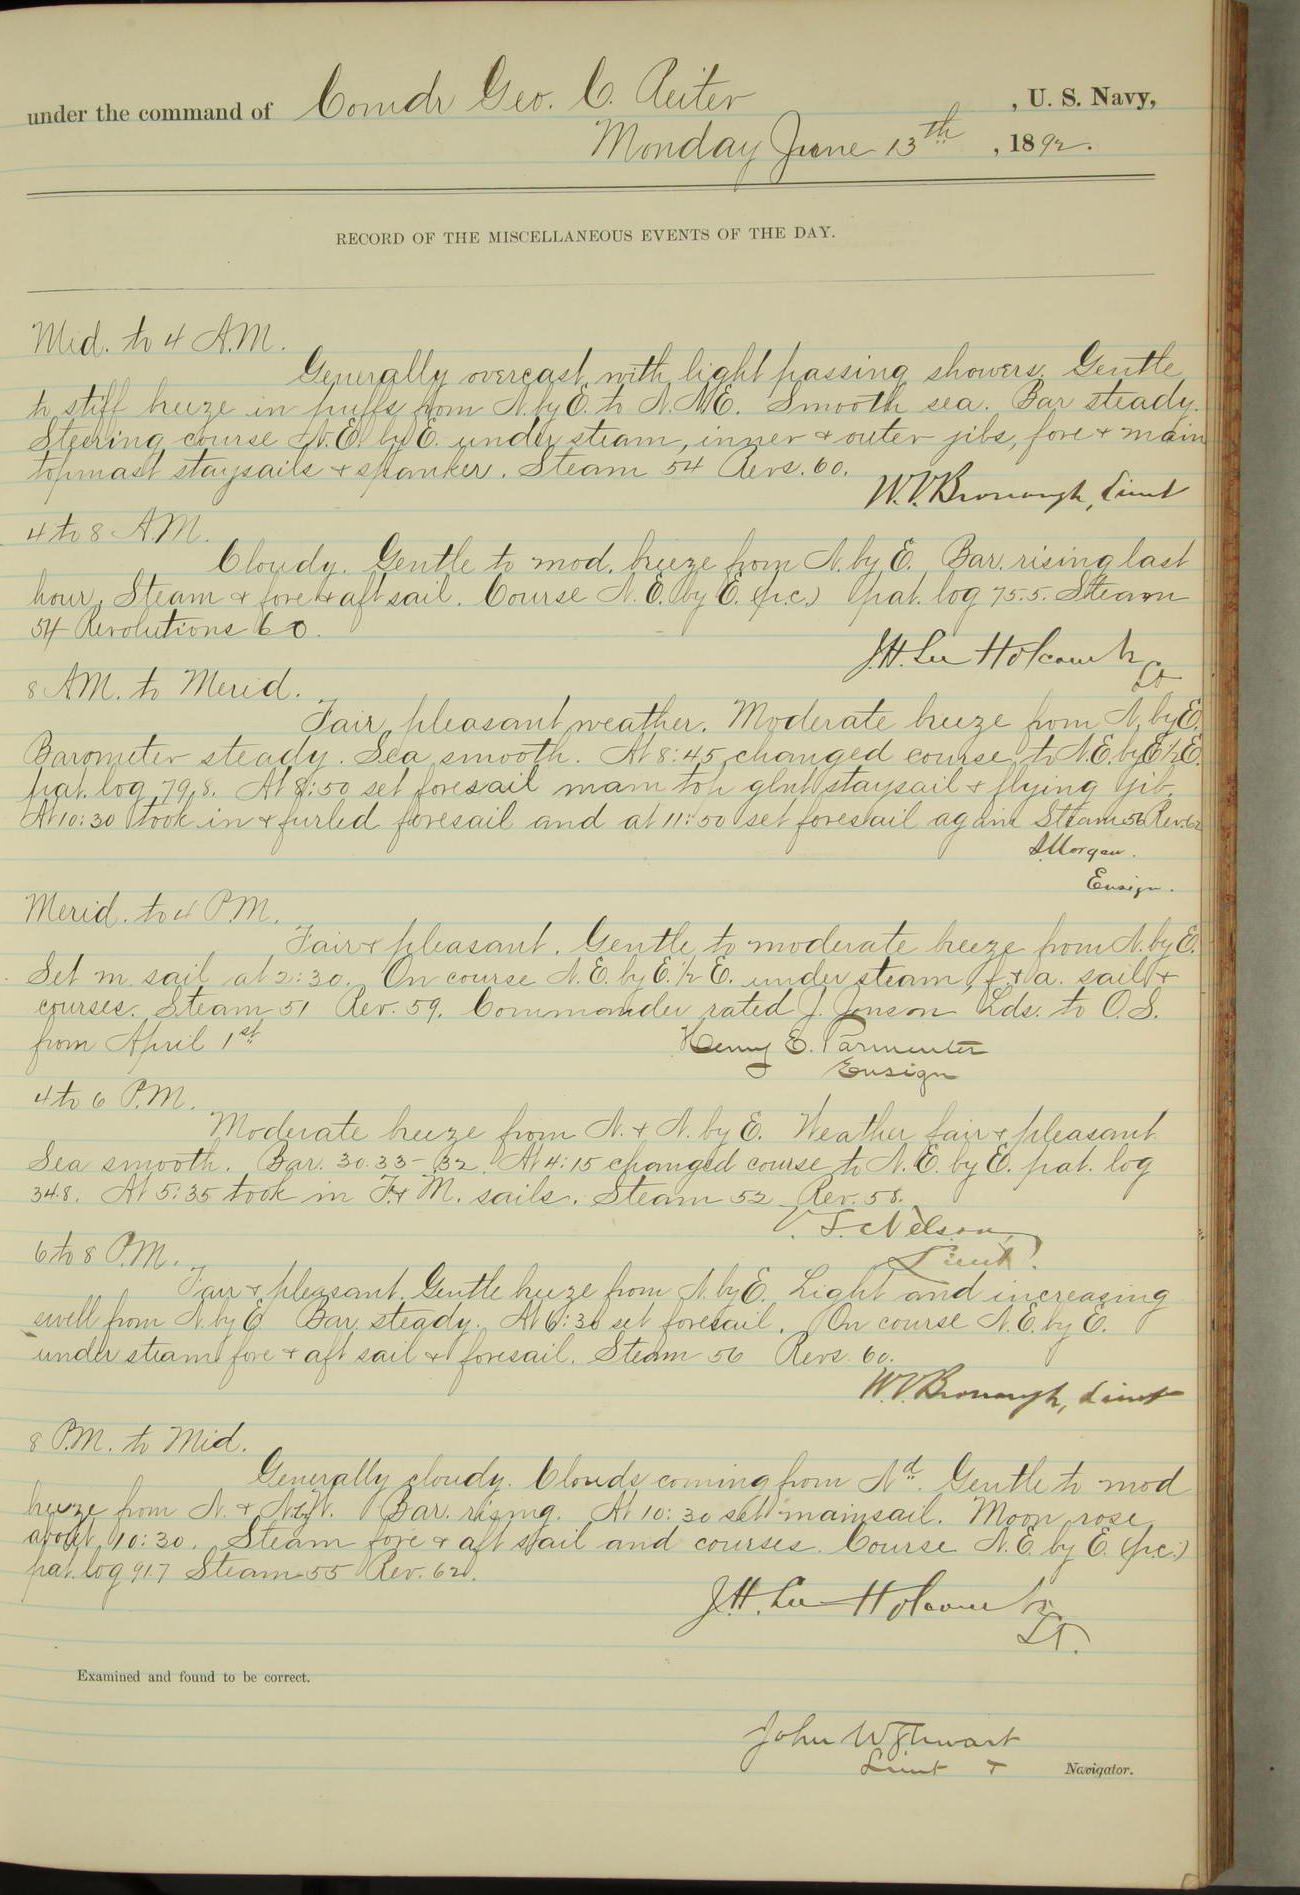 under the command of Comdr Geo. C. Reiter , U. S. Navy,
Monday June 13th , 1892.
RECORD OF THE MISCELLANEOUS EVENTS OF THE DAY.
Mid. to 4 A.M.
Generally overcast with light passing showers. Gentle
to stiff breeze in puffs from N. by E. to N.N.E. Smooth sea. Bar steady.
Steering course N.E. by E. under steam, inner + outer jibs, fore + main
topmast staysails + spanker. Steam 54 Revs. 60.
W.V. Bronaugh, Lieut
4 to 8 A.M.
Cloudy. Gentle to mod. breeze from N. by E. Bar. rising last
hour. Steam + fore + aft sail. Course N.E. by E. (p.c.) pat. log 75.5. Steam
54 Revolutions 60.
J.H. Lee Holcomb
Lt
8 AM. to Merid.
Fair, pleasant weather. Moderate breeze from N. by E.
Barometer steady. Sea smooth. At 8:45 changed course to N.E. by E ½ E.
pat. log 79.8. At 8:50 set foresail main top glnt staysail + flying jib.
At 10:30 took in + furled foresail and at 11:50 set foresail again Steam 56 Rev. 62
S. Morgan.
Ensign.
Merid. to 4 P.M.
Fair + pleasant. Gentle to moderate breeze from N. by E.
Set m. sail at 2:30. On course N.E. by E. ½ E. under steam, f. + a. sail +
courses. Steam 51 Rev. 59. Commander rated J. Jonson Lds. to O.S.
from April 1st
Henry E. Parmenter
Ensign
4 to 6 P.M.
Moderate breeze from N. + N. by E. Weather fair + pleasant
Sea smooth. Bar. 30.33 - 32. At 4:15 changed course to N.E. by E. pat. log
34.8. At 5:35 took in F. + M. sails. Steam 52 Rev. 58.
V. S. Nelson,
Lieut.
6 to 8 P.M.
Fair + pleasant. Gentle breeze from N. by E. Light and increasing
swell from N. by E Bar. steady. At 6:30 set foresail. On course N.E. by E.
under steam fore + aft sail + foresail. Steam 56 Revs. 60.
W.V. Bronaugh, Lieut
8 P.M. to Mid.
Generally cloudy. Clouds coming from Nd. Gentle to mod
breeze from N. + Bar. rising. At 10:30 set mainsail. Moon rose
about 10:30. Steam fore + aft sail and courses. Course N.E. by E. (p.c.)
pat. log 91.7 Steam 55 Rev. 62.
J.H. Lee Holcomb
Lt.
Examined and found to be correct.
John W Stewart
Lieut + Navigator.